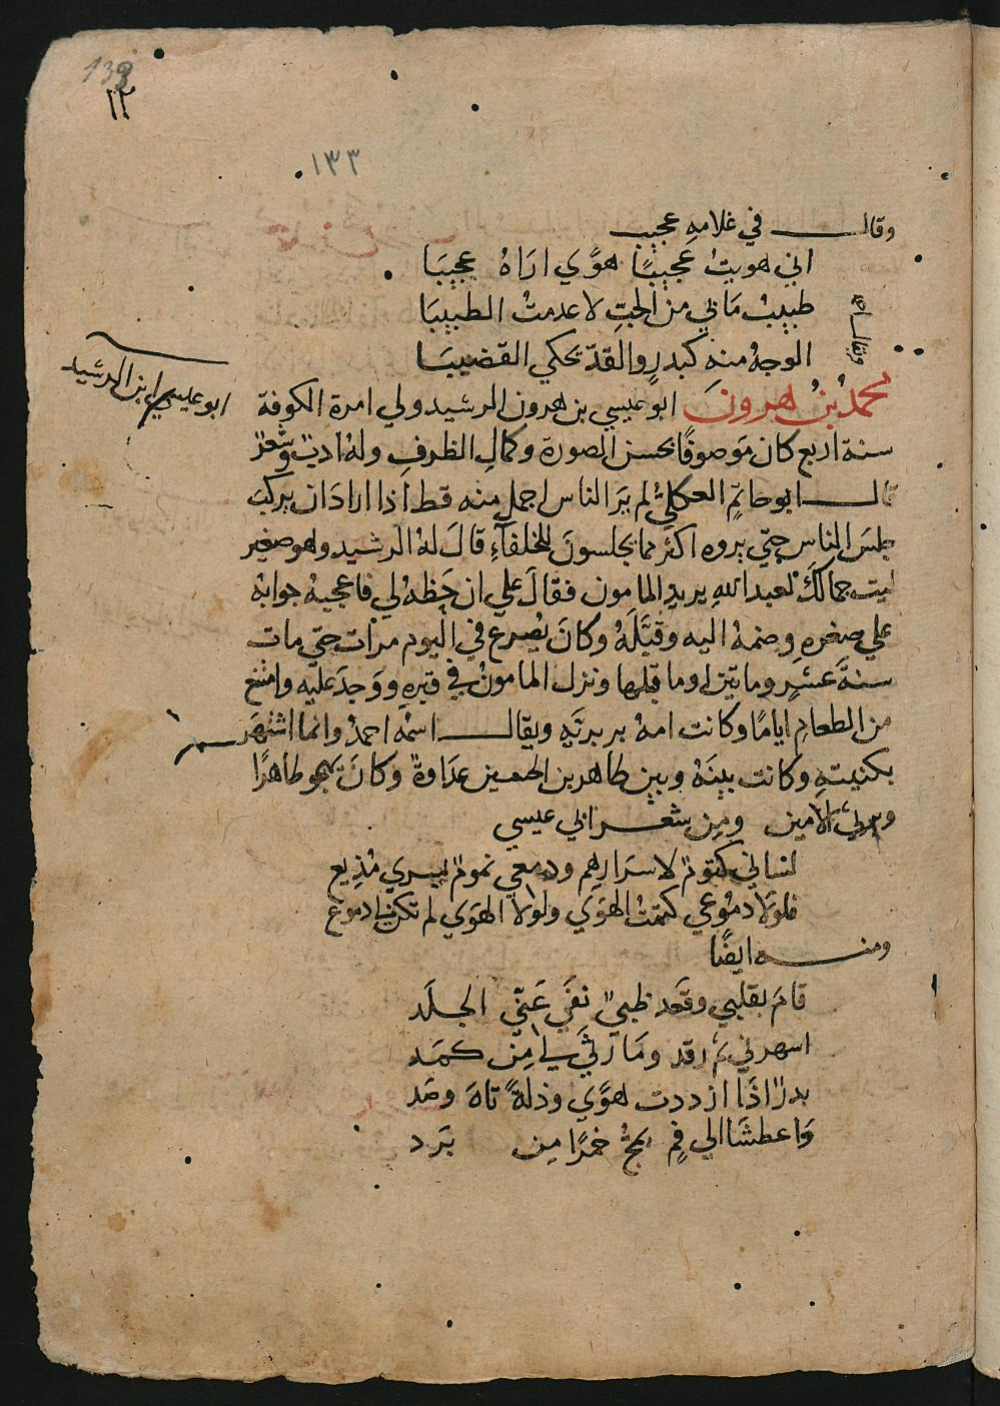 138
١٣
١٣٣
وقال في غلامه عجيب
اني هويتُ عجيبًا هوًي اراهُ عجيبَا
طبيبُ مَا بي من الحبِ لا عدمتُ الطبيبَا
الوجهُ منه كبدرٍ والقدّ يحكي القضيبَا
ابو عيسي ابن الرشيد
محمدُ بنُ هرونَ ابو عيسي بن هرون الرشيد ولي امرة الكوفة
سنة اربع كان مَوصوفًا بحسن الصورة وكمالِ الظرفِ ولهُ ادبٌ وشعرٌ
قال ابو حاتمٍ العكليُّ لم يَرَ الناس اجمل منه قط اذا ارادَ ان يركبَ
جلسَ الناس حتي يروه اكثر مما يجلسونَ للخلفآءِ قالَ لهُ الرشيد وهو صغير
ليت جمالكَ لعبد اللهِ يريد المامون فقالَ علي ان حَظهُ لي فاعجبهُ جوابهُ
علي صغرهِ وضمهُ اليه وقبَّلهُ وكانَ يُصرع في اليوم مرات حتي مات
سنةَ عشرٍ وماتين او ما قبلها ونزل المامونُ في قبرهِ ووَجدَ عليه وامتنع
من الطعامِ ايامًا وكانت امهُ بربريَّه ويقال اسمُه احمدُ وانما اشتهَر
بكنيتهِ وكانت بينَهُ وبين طاهر بن الحسين عدَاوةٌ وكانَ يهجو طاهرًا
ويرثي الامين ومِن شعر ابي عيسي
لساني كتومٌ لاسرَارهِم ودمعي نمومٌ بسري مُذِيع
فلولَا دمُوعي كتمتُ الهوَي ولولا الهوَي لم تكن لي دموع
ومنه ايضًا
قامَ بقلبي وقَعد ظبيٌ نفَي عَنّي الجلَد
اسهرني ثم رقد ومَا رثَي لي مِن كمَد
بدرٌ اذَا ازددت هوًي وذلةً تاهَ وصَد
وَاعطشَا الي فمٍ يمجُّ خمرًا مِن بَرَد